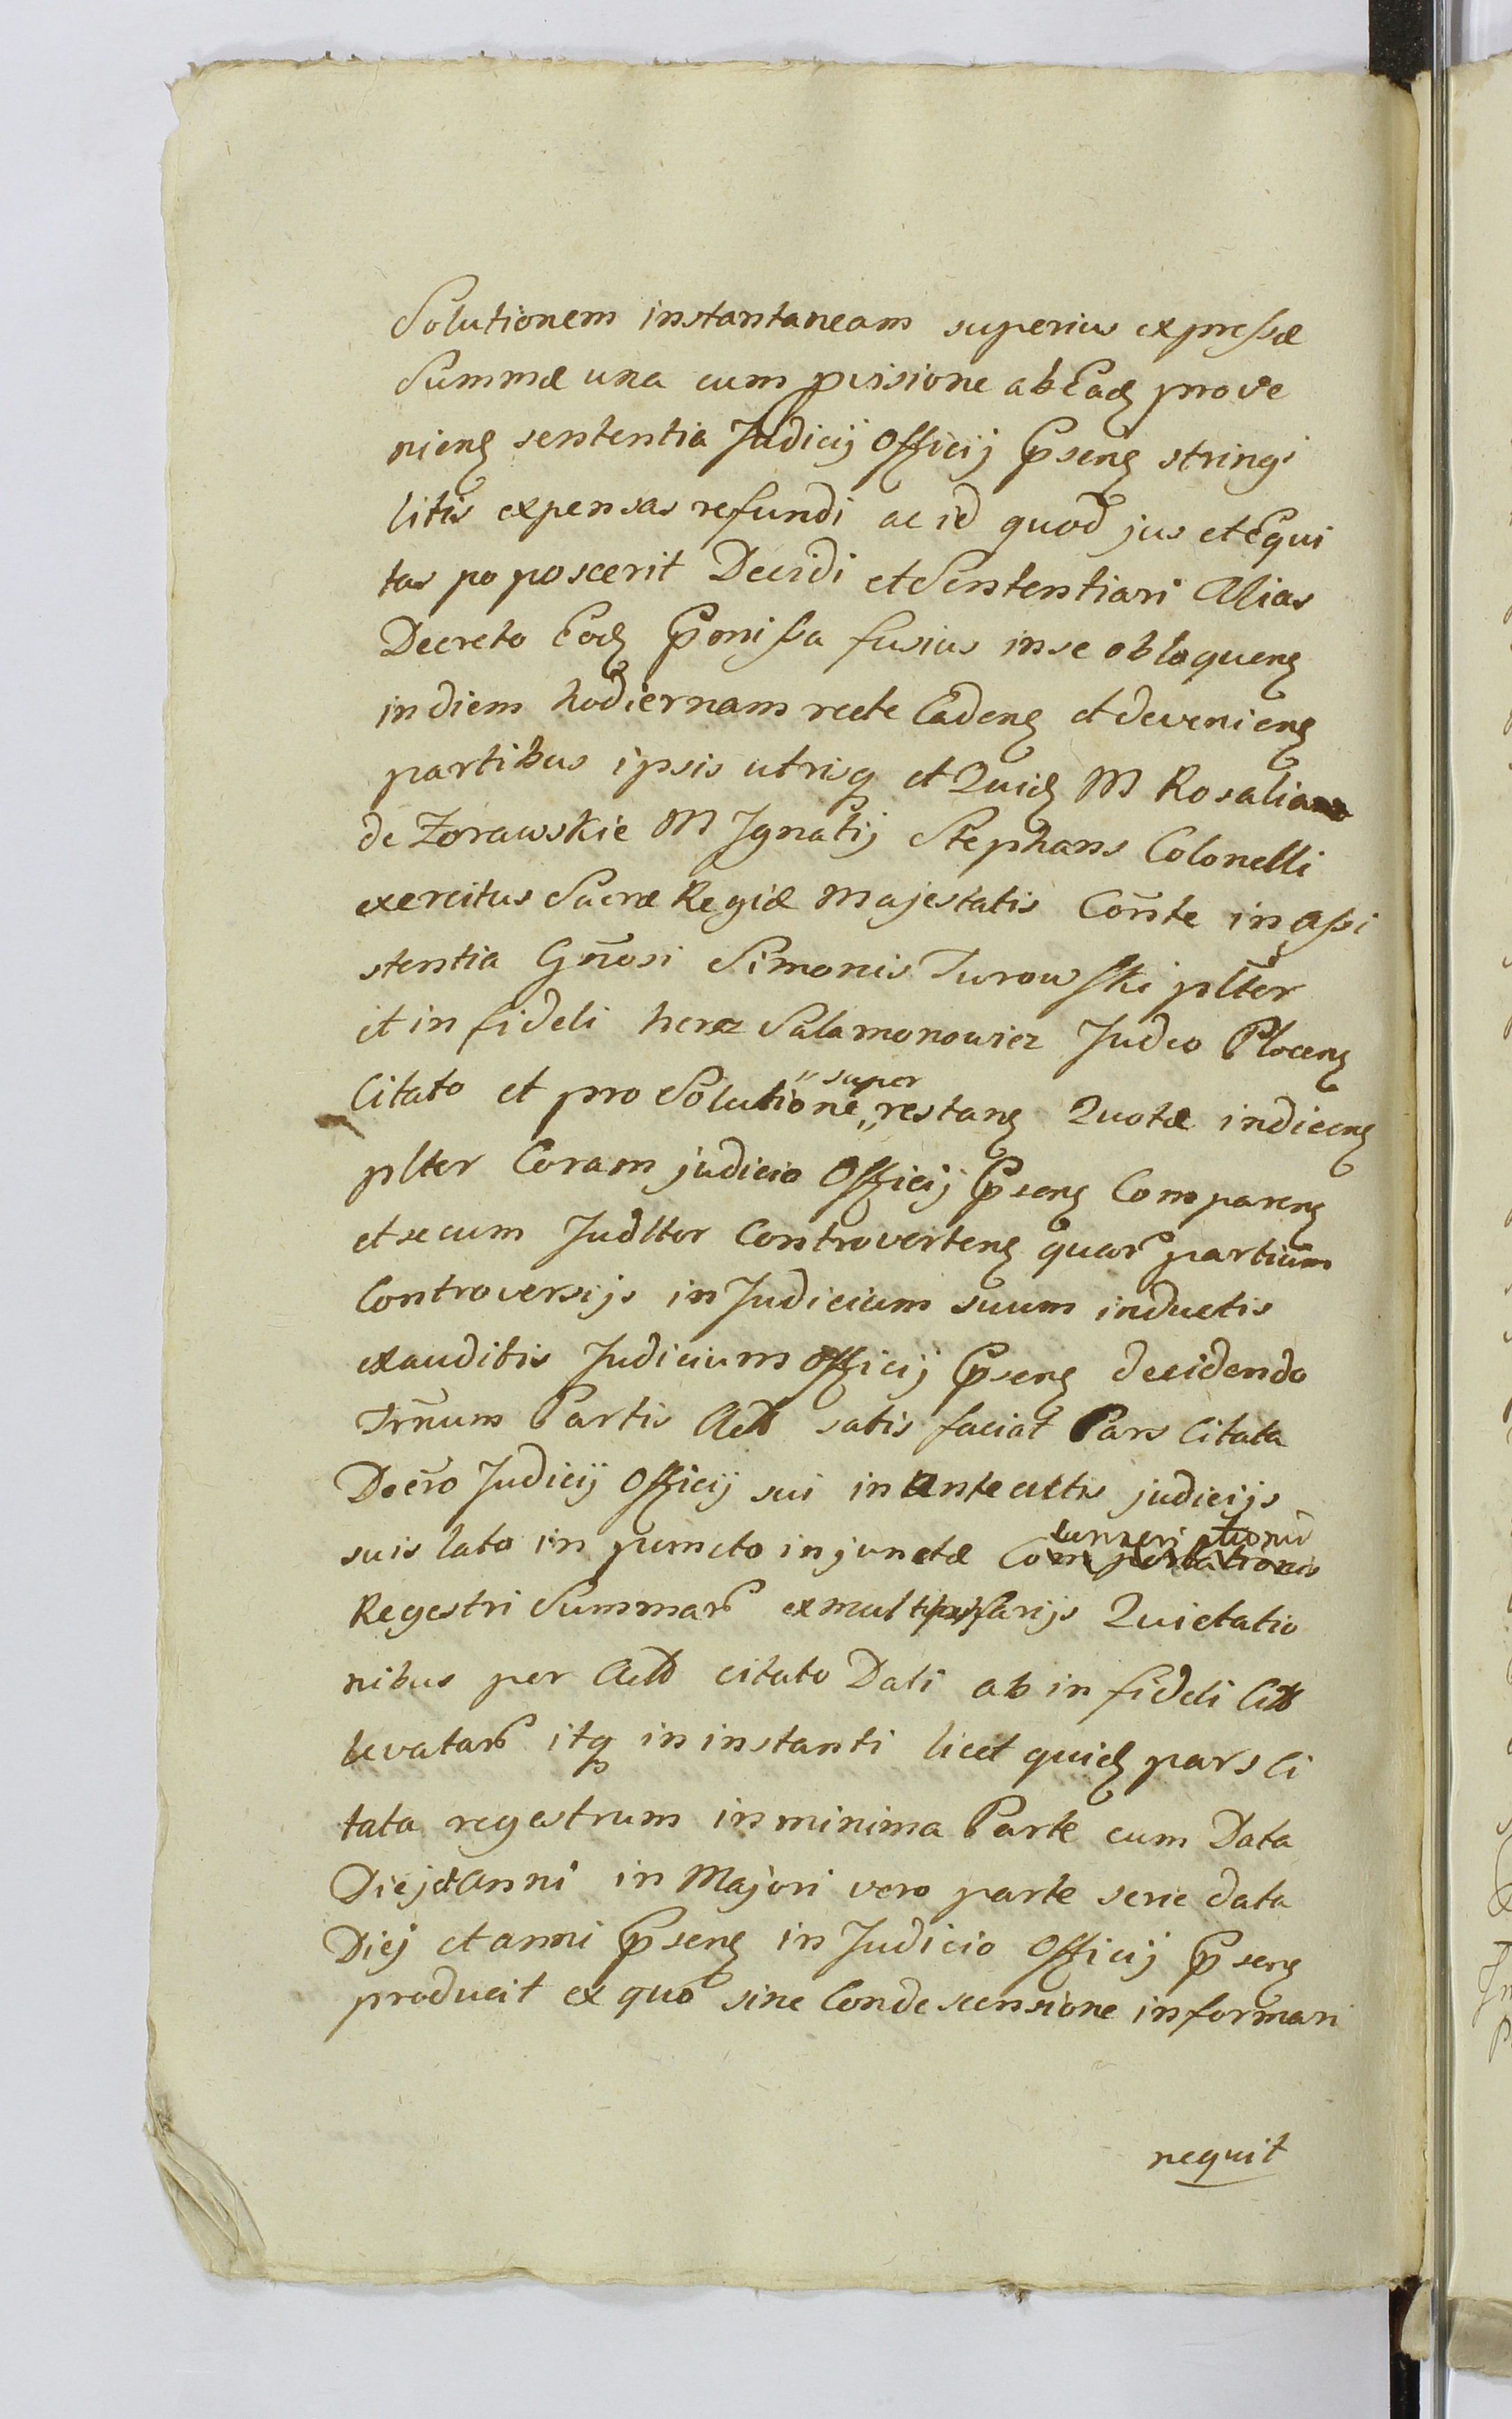 Solutionem instantaneam superius expressæ
Summæ una cum pvisione ab Eadꝫ prove
nienꝫ sententia Judicij Officij Pnsenꝫ stringi
litis expensas refundi ac id quod jus et Equi
tas poposcerit Decidi et Sententiari Alias
Decreto Eodꝫ Pmissa fusius in se obloquenꝫ
in diem hodiernam recte Cadenꝫ et devenienꝫ
partibus ipsis utrisqꝫ et Quidꝫ M Rosalia
de Zorawskie M Ignatij Stephans Colonelli
exercitus Sacræ Regiæ Majestatis Coñte in assi
stentia Gñosi Simonis Turowski plter
et infideli hersz Salamonowicz Judeo Plocenꝫ
Citato et pro Solutione „super„ restanꝫ Quotæ indicenꝫ
plter Coram judicio Officij Psenꝫ Comparenꝫ
et secum Judlter Controvertenꝫ quar partium
Controversijs in Judicium suum inductis
exauditis Judicium Officij Psenꝫ decidendo
Trñum Partis Act satis faciat Pars Citata
Decro Judicij Officij sui in anteactis judicijs
suis lato in puncto injunctæ Conscriptionis
Regestri Summar ex multifarijs Quietatio
nibus per Act citato Dati ab infideli Cit
levatar itqꝫ in instanti licet quidꝫ pars Ci
tata regestrum in minima Parte cum Data
Diej et Anni in Majori vero parte serie data
Diej et anni Psenꝫ in Judicio Officij Psenꝫ
producit ex quo sine Condescensione informari
nequit